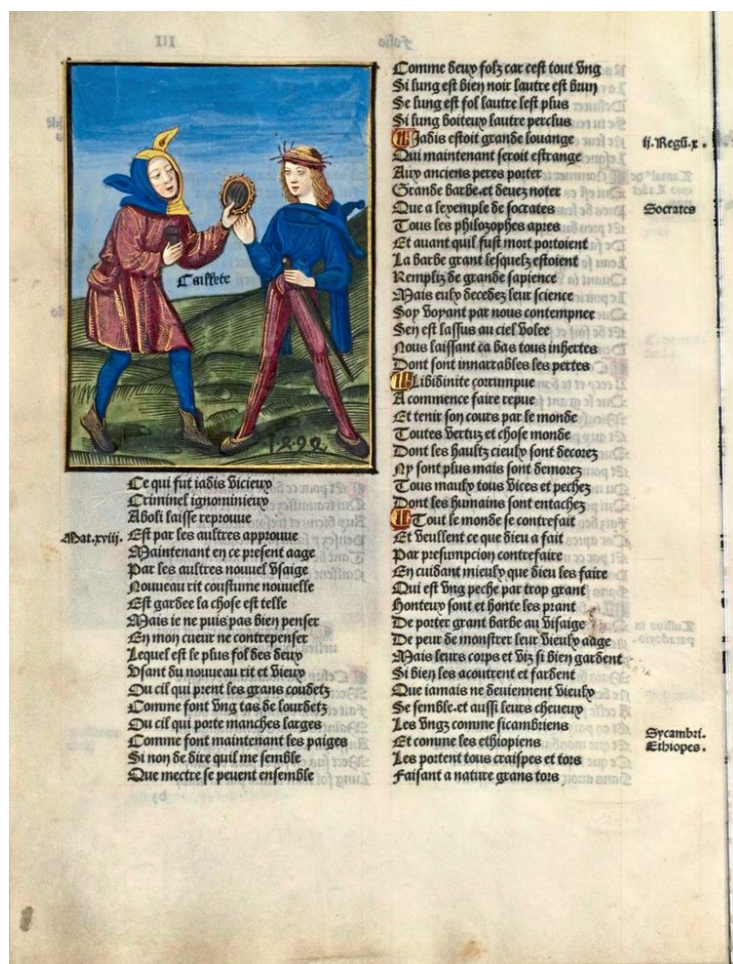 Caillete
1.4.9.2.
Ce qui fut iadis vicieux
Criminel ignominieux
Aboli laisse reprouue
Mat.xviii.
Est par les aultres approuue
Maintenant en ce present aage
Par les aultres nouuel vsaige
Nouueau rit coustume nouuelle
Est gardee la chose est telle
Mais ie ne puis pas bien penser
En mon cueur ne contrepenser
Lequel est le plus fol des deux
Vsant du nouueau rit et vieux
Ou cil qui prent les grans coudetz
Comme font vng tas de lourdetz
Ou cil qui porte manches larges
Comme font maintenant les paiges
Si non de dire quil me semble
Que mectre se peuent ensemble
Comme deux folz car cest tout vng
Si lung est bien noir lautre est brun
Se lung est fol lautre lest plus
Si lung boiteux lautre perclus
Iadis estoit grande louange
ii.Regū.x.
Qui maintenant seroit estrange
Aux anciens peres porter
Grande barbe.et deuez noter
Que a lexemple de socrates
Socrates
Tous les philozophes apres
Et auant quil fust mort portoient
La barbe grant lesquelz estoient
Rempliz de grande sapience
Mais eulx decedez leur science
Soy voyant par nous contempnee
Sen est lassus au ciel volee
Nous laissant ca bas tous inhertes
Dont sont innarrables les pertes
Libidinite corrumpue
A commence faire repue
Et tenir son cours par le monde
Toutes vertuz et chose monde
Dont les haultz cieulx sont decorez
Ny sont plus mais sont demorez
Tous maulx tous vices et pechez
Dont les humains sont entachez
Tout le monde se contrefait
Et veullent ce que dieu a fait
Par presumpcion contrefaire
En cuidant mieulx que dieu les faire
Qui est vng peche par trop grant
Honteux sont et honte les prant
De porter grant barbe au visaige
De peur de monstrer leur vieulx aage
Mais leurs corps et viz si bien gardent
Si bien les acoutrent et fardent
Que iamais ne deuiennent vieulx
Se semble.et aussi leurs cheueux
Les vngz comme sicambriens
Sycambri.
Et comme les ethiopiens
Ethiopes.
Les portent tous craispes et tors
Faisant a nature grans tors